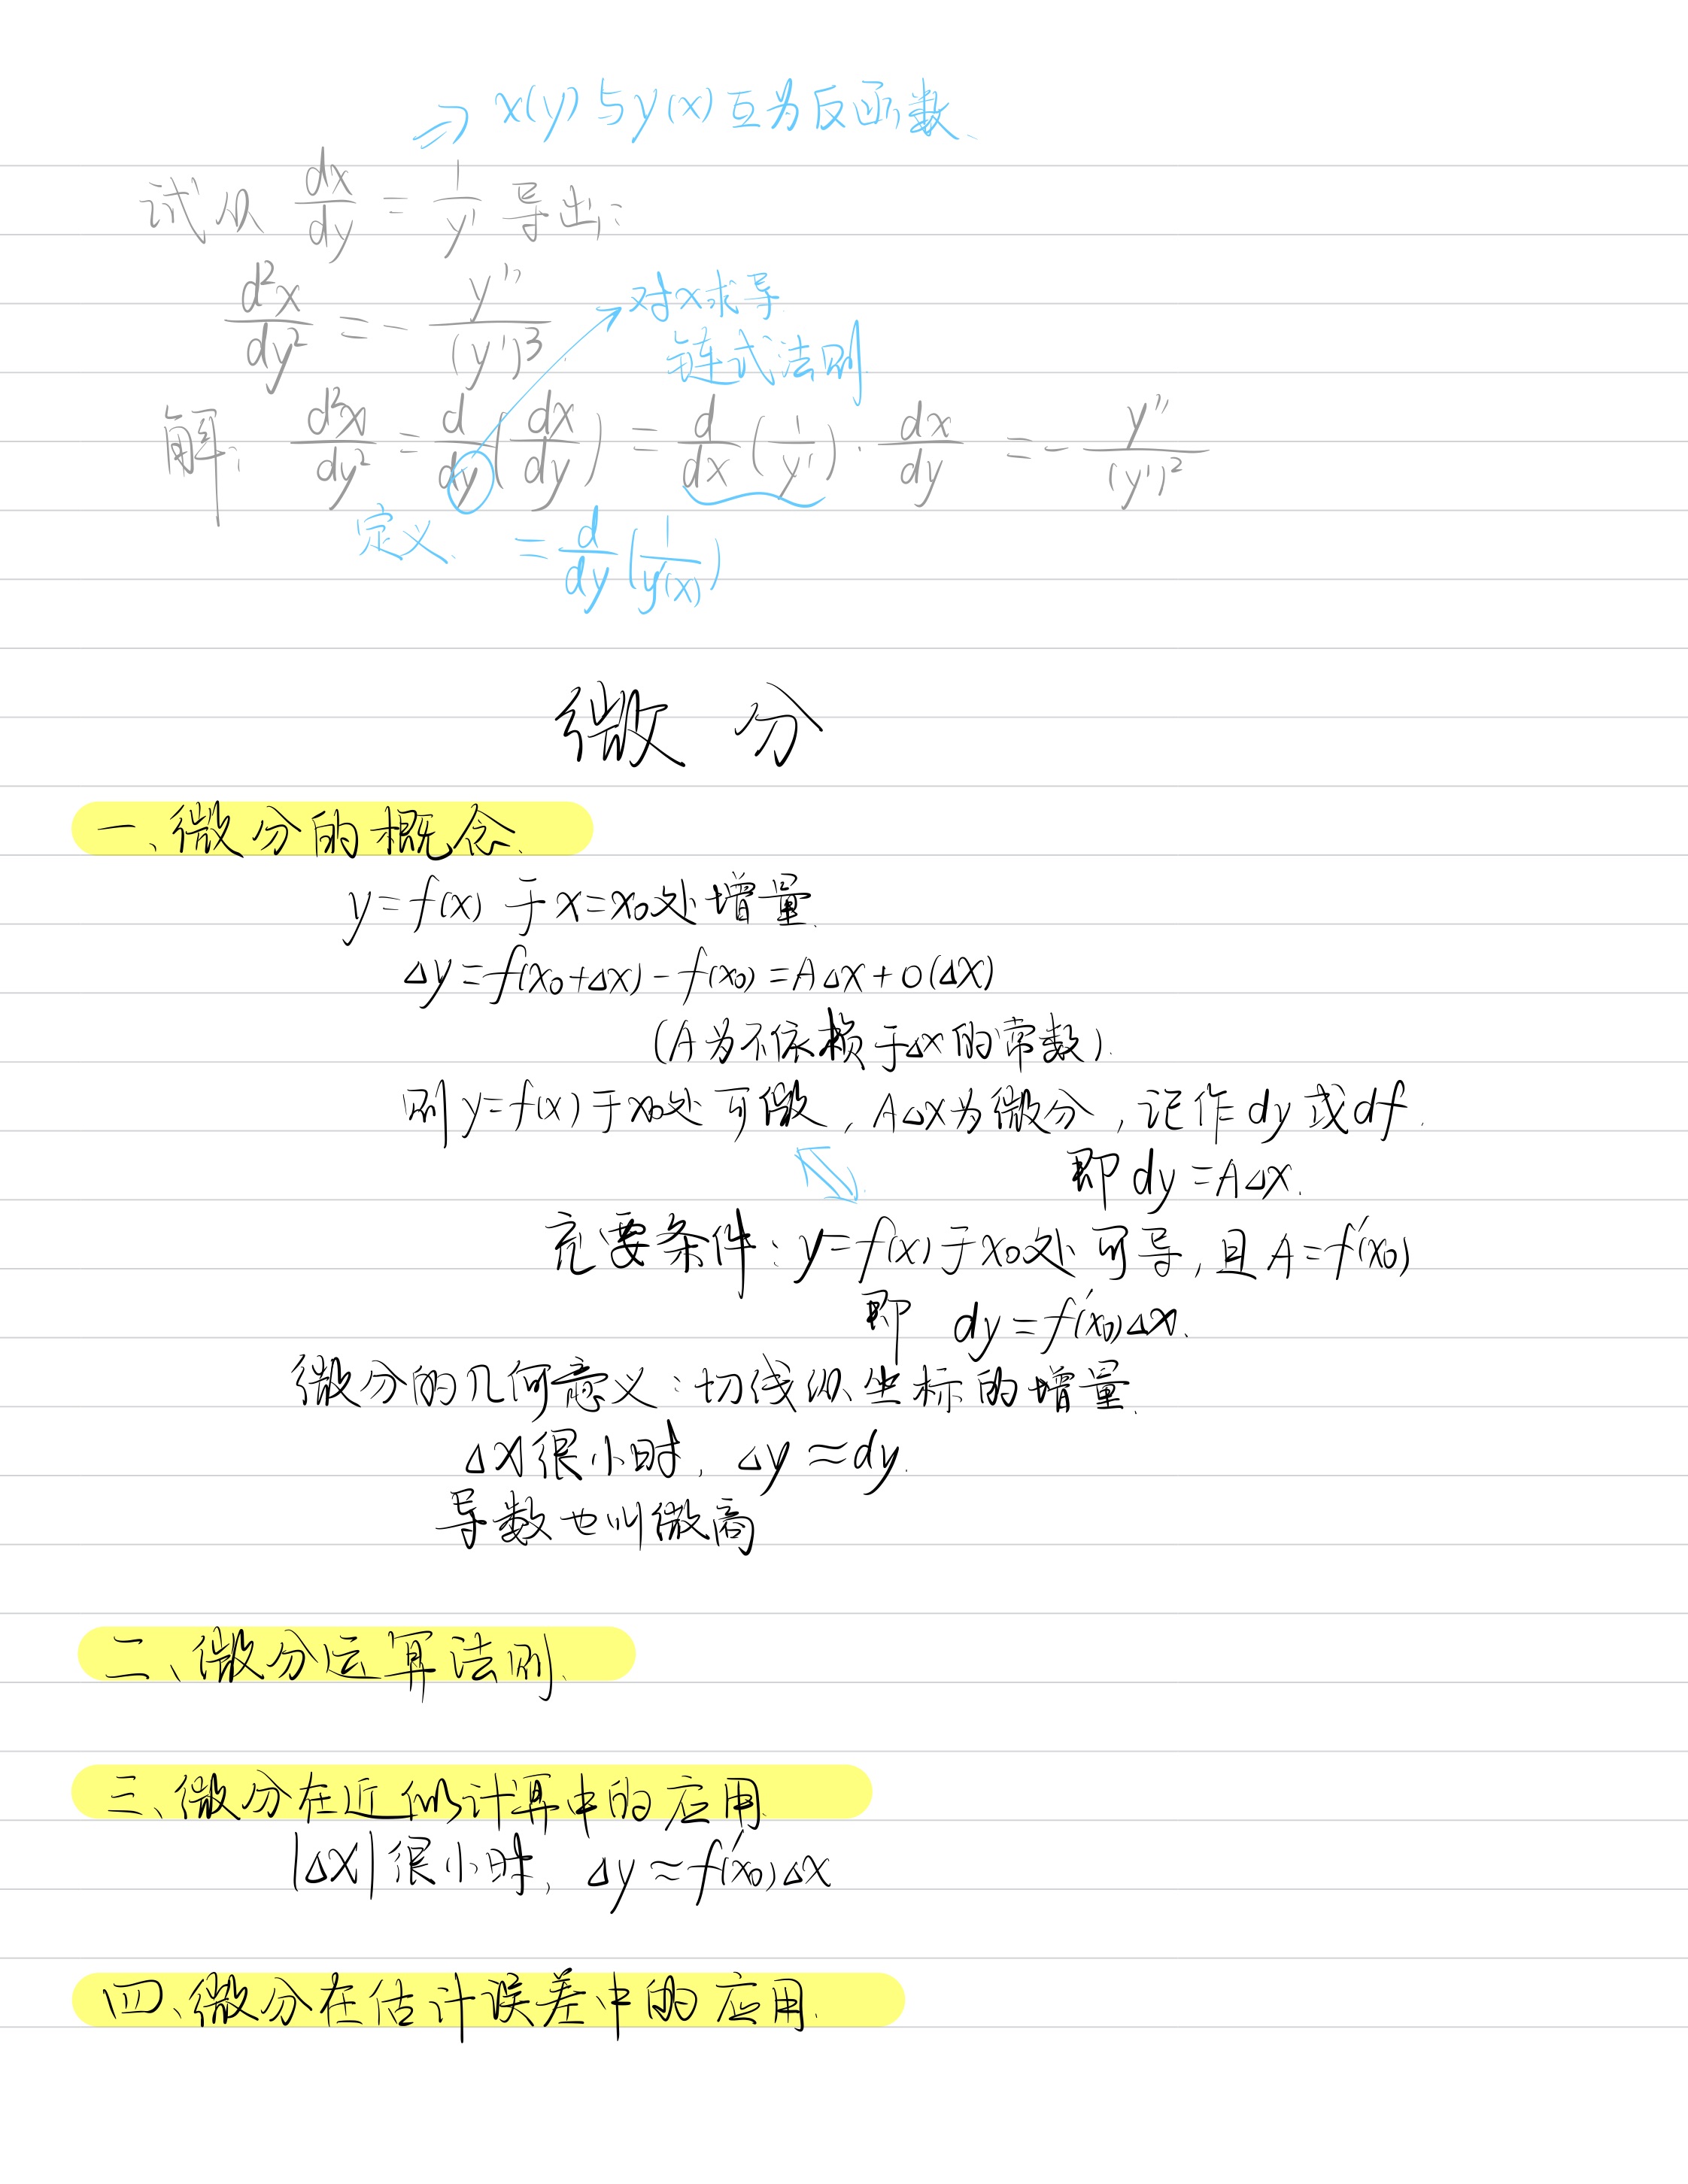 ⇒ x(y)与y(x)互为反函数.
试从 dx/dy = 1/y' 导出:
d²x/dy² = - y''/(y')³
对x求导
链式法则
解: d²x/dy² = d/dy (dx/dy) = d/dx (1/y') · dx/dy = - y''/(y')²
定义. = d/dy (1/y'(x))
微 分
一、微分的概念.
y=f(x) 于x=x₀处增量.
Δy=f(x₀+Δx)-f(x₀)=AΔx+o(Δx)
(A为不依赖于Δx的常数).
则y=f(x)于x₀处可微, AΔx为微分, 记作dy或df.
即dy=AΔx.
⇔
充要条件: y=f(x)于x₀处可导, 且A=f'(x₀)
即 dy=f'(x₀)Δx.
微分的几何意义: 切线纵坐标的增量.
Δx很小时, Δy≈dy.
导数也叫微商
二、微分运算法则.
三、微分在近似计算中的应用.
|Δx|很小时, Δy≈f'(x₀)Δx
四、微分在估计误差中的应用.